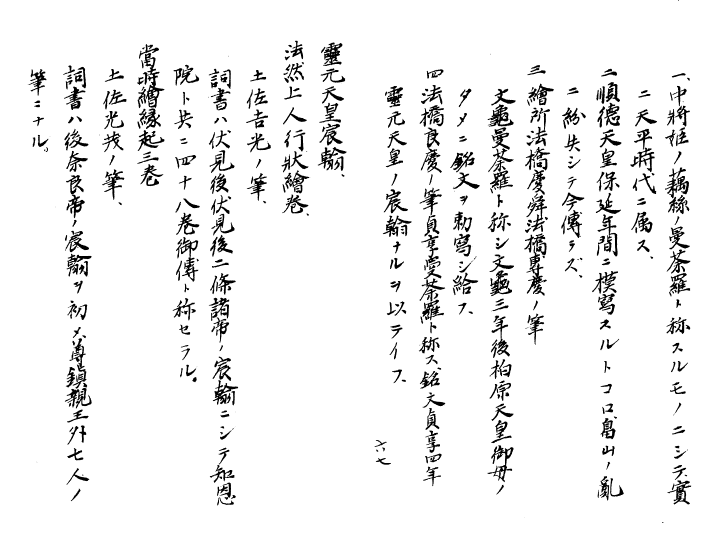 一、中將姫ノ藕絲ノ曼荼羅ト称スルモノニシテ、實
ニ天平時代ニ属ス、
二順德天皇保延年間ニ模寫スルトコロ畠山ノ亂
ニ紛失シテ今傳ラズ、
三繪所法橋慶舜法橋專慶ノ筆
文龜曼荼羅ト称シ文龜三年後柏原天皇御母ノ
タメニ銘文ヲ勅寫シ給フ、
四法橋良慶ノ筆貞享曼荼羅ト称ス、銘文貞享四年
靈元天皇ノ宸翰ナルヲ以テイフ、
六七
靈元天皇宸翰、
法然上人行狀繪卷、
土佐吉光ノ筆、
詞書ハ伏見後伏見後二條諸帝ノ宸翰ニシテ知恩
院ト共ニ四十八卷御傳ト称セラル。
當時繪縁起三卷
土佐光茂ノ筆、
詞書ハ後奈良帝ノ宸翰ヲ初メ、尊鎮親王外七人ノ
筆ニナル。